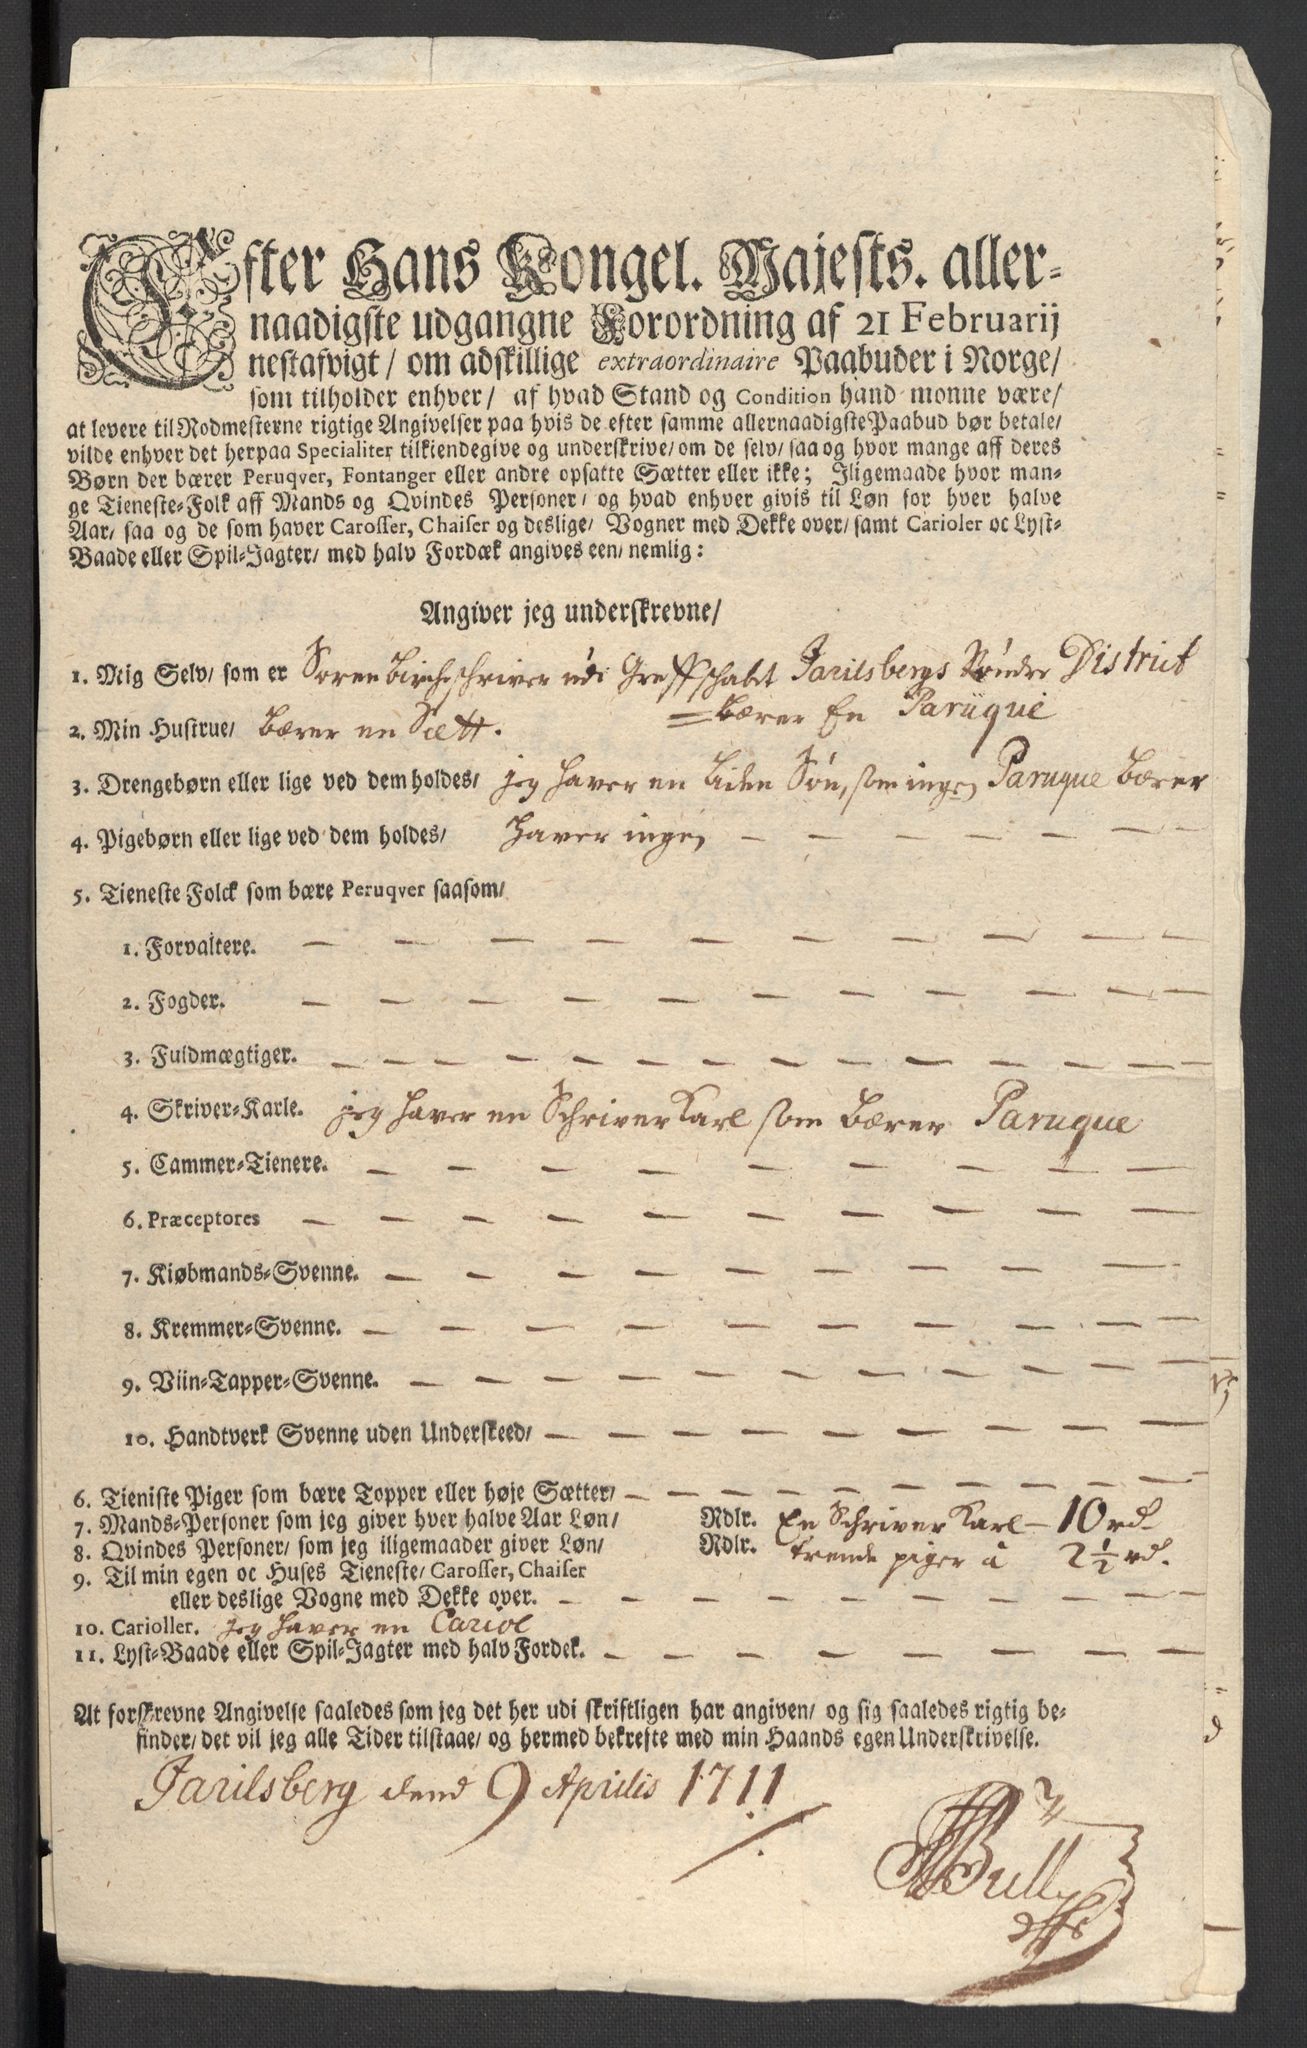 Efter Hans Kongel. Majests. aller-
naadigste udgangne Forordning af 21 Februarij
nestafvigt/ om adskillige extraordinaire Paabuder i Norge/
som tilholder enhver/ af hvad Stand og Condition hand monne være/
at levere til Rodmesterne rigtige Angivelser paa hvis de efter samme allernaadigste Paabud bør betale/
vilde enhver det herpaa Specialiter tilkiendegive og underskrive/ om de selv/ saa og hvor mange aff deres
Børn der bærer Peruqver, Fontanger eller andre opsatte Sætter eller ikke; Iligemaade hvor man-
ge Tieneste-Folk aff Mands og Qvindes Personer/ og hvad enhver givis til Løn for hver halve
Aar/ saa og de som haver Carosser, Chaiser og deslige/ Vogner med Dekke over/ samt Carioler oc Lyst-
Baade eller Spil-Jagter/ med halv Fordæk angives een/ nemlig:
Angiver jeg underskrevne/
1. Mig Selv/ som er Sorenbirchschriver udi Greffschabt Jarilsbergs Søndre District
= bærer En Parüque
2. Min Hustrue/ bærer en Sætt.
3. Drengebørn eller lige ved dem holdes/ jeg haver en liden Søn, som ingen Paruque bærer
4. Pigebørn eller lige ved dem holdes/ haver ingen — — — — — —
5. Tieneste Folck som bære Peruqver saasom/
1. Forvaltere. — — — — — — — — — —
2. Fogder. — — — — — — — — — — —
3. Fuldmægtiger. — — — — — — — — — — —
4. Skriver-Karle. jeg haver en Schriver Karl som bærer Paruque
5. Cammer-Tienere. — — — — — — — — —
6. Præceptores — — — — — — — — — —
7. Kiøbmands-Svenne. — — — — — — — —
8. Kremmer-Svenne. — — — — — — — — —
9. Viin-Tapper-Svenne. — — — — — — — — — —
10. Handtverk Svenne uden Underskeed/ — — — — — — — —
6. Tieniste Piger som bære Topper eller høje Sætter/ — — — — — — — — —
7. Mands-Personer som jeg giver hver halve Aar Løn/ Rdlr. En Schriver Karl — 10 rd.
8. Qvindes Personer/ som jeg iligemaader giver Løn/ Rdlr. trende piger á 2½ rd.
9. Til min egen oc Huses Tieneste/ Carosser, Chaiser
eller deslige Vogne med Dekke over. — — — — — — — — —
10. Carioller. jeg haver en Cariol
11. Lyst-Baade eller Spil-Jagter med halv Fordek. — — — — — — — —
At forskrevne Angivelse saaledes som jeg det her udi skriftligen har angiven/ og sig saaledes rigtig be-
finder/ det vil jeg alle Tider tilstaae/ og hermed bekrefte med min Haands egen Underskrivelse.
Jarilsberg dend 9 Aprilis 1711
Bull